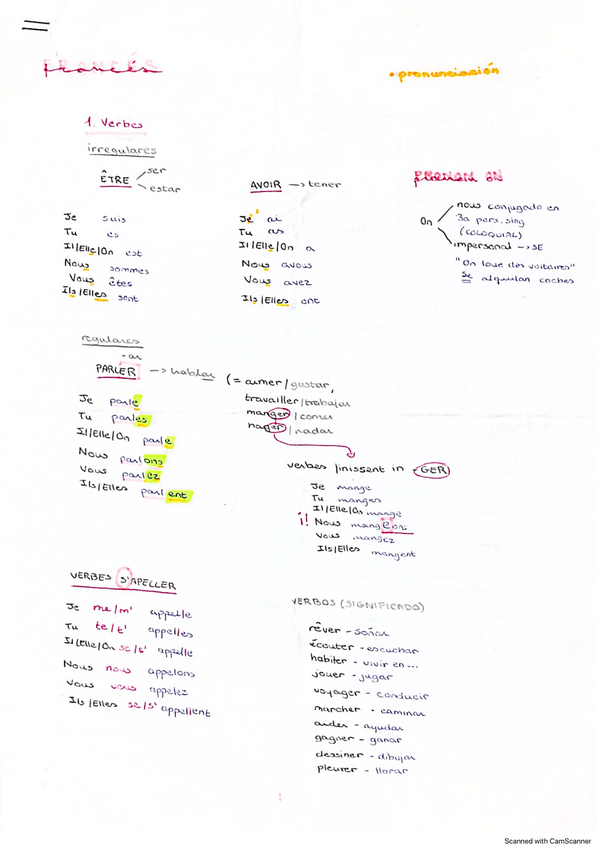 francés
• pronunciasión
1. Verbes
irregulares
ÊTRE
ser
estar
Je suis
Tu es
Il/Elle/On est
Nous sommes
Vous êtes
Ils/Elles sont
AVOIR → tener
Je' ai
Tu as
Il/Elle/On a
Nous avons
Vous avez
Ils/Elles ont
On
nous conjugado en
3a pers. sing
(COLOQUIAL)
impersonal → SE
"On loue des voitures"
Se alquilan coches
regulares
-ar
PARLER → hablar (= aimer/gustar,
travailler/trabajar
manger/comer
nager/nadar
Je parle
Tu parles
Il/Elle/On parle
Nous parlons
Vous parlez
Ils/Elles parlent
verbes finissent in -GER
Je mange
Tu manges
Il/Elle/On mange
¡! Nous mangeons
Vous mangez
Ils/Elles mangent
VERBES S'APELLER
Je me/m' appelle
Tu te/t' appelles
Il/Elle/On se/s' appelle
Nous nous appelons
Vous vous appelez
Ils/Elles se/s' appellent
VERBOS (SIGNIFICADO)
rêver - soñar
écouter - escuchar
habiter - vivir en ...
jouer - jugar
voyager - conducir
marcher - caminar
aider - ayudar
gagner - ganar
dessiner - dibujar
pleurer - llorar
Scanned with CamScanner